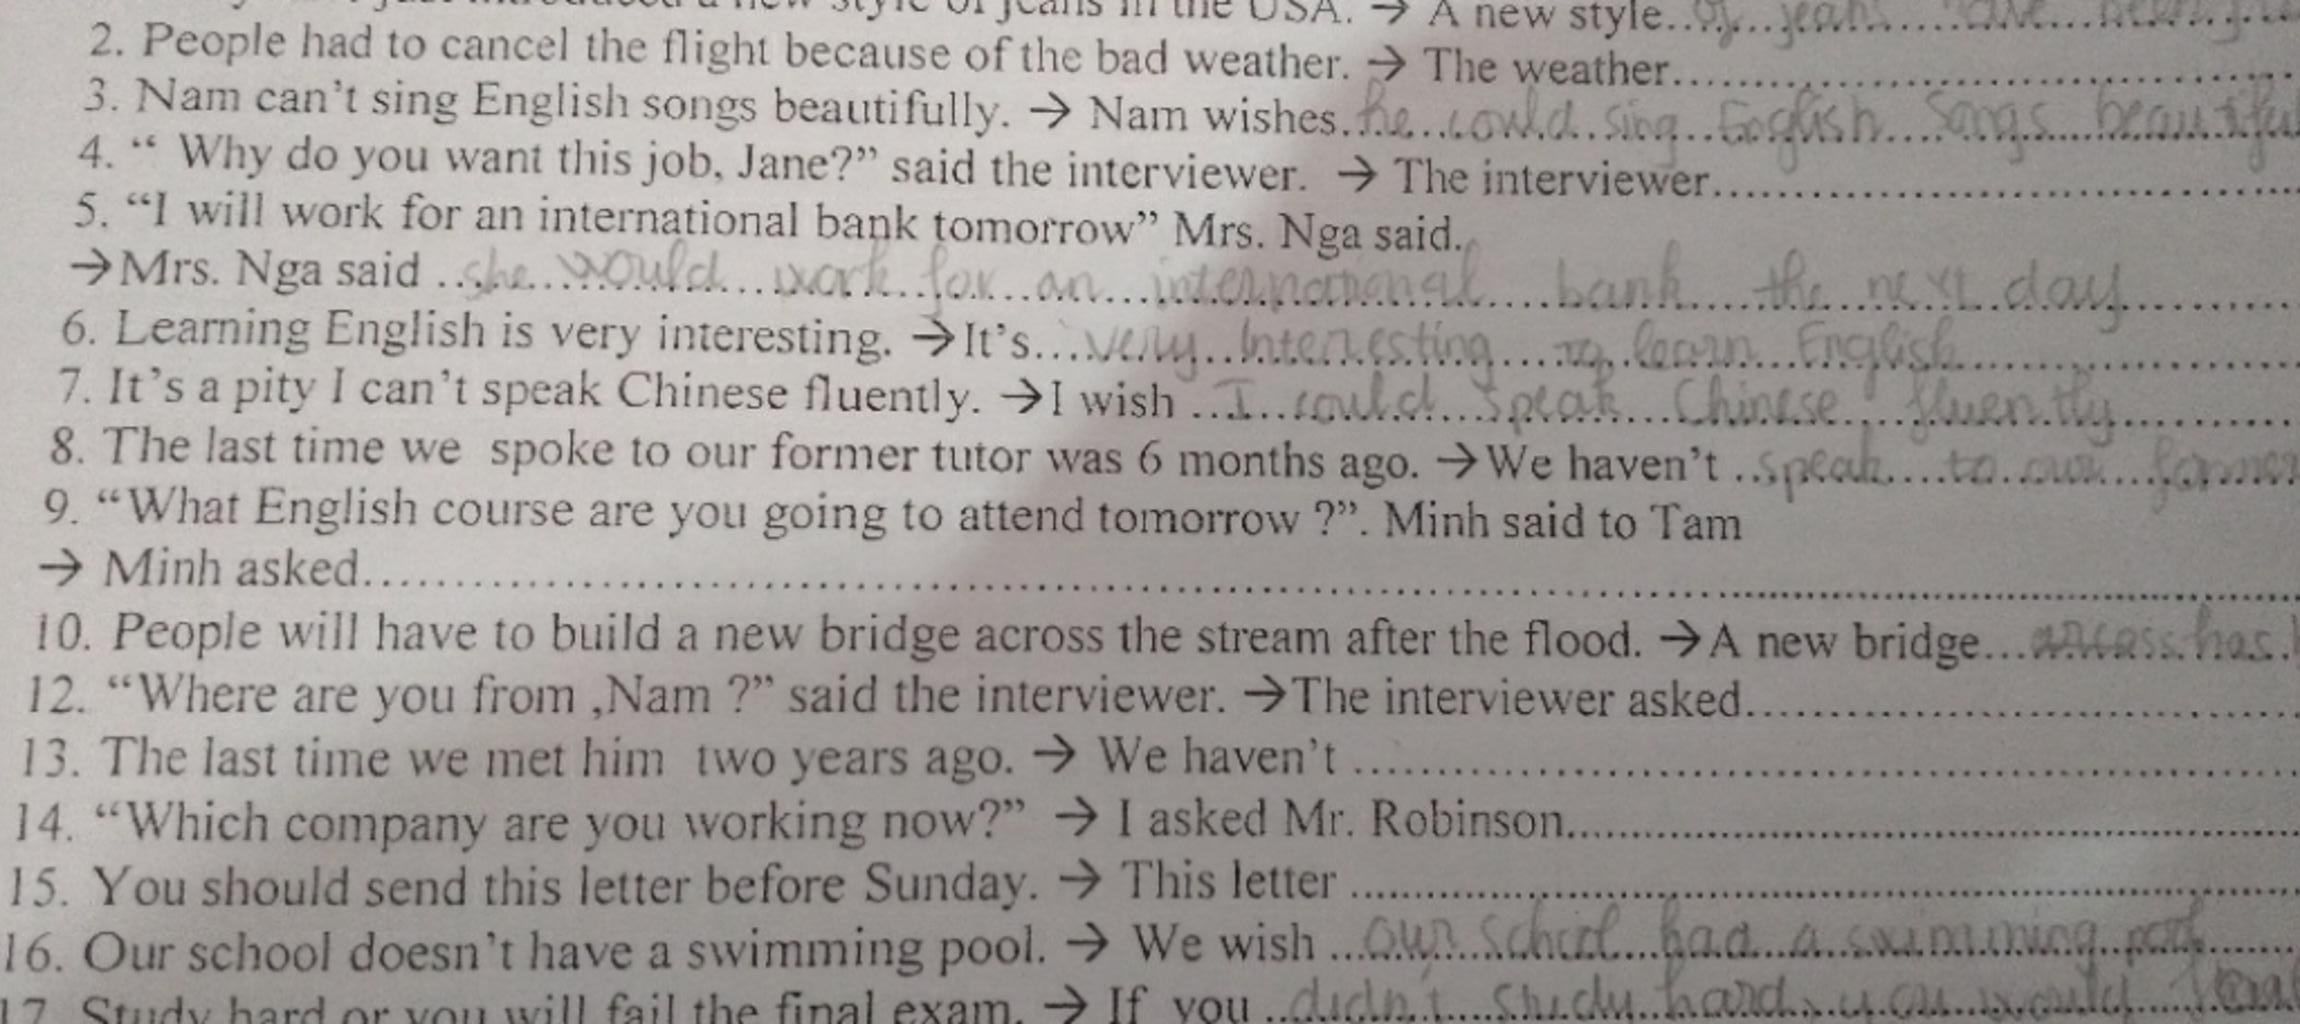 just introduced a new style of jeans in the USA. → A new style... of jeans
2. People had to cancel the flight because of the bad weather. → The weather..............................
3. Nam can't sing English songs beautifully. → Nam wishes. he could sing English songs
4. “ Why do you want this job, Jane?” said the interviewer. → The interviewer..............................
5. “I will work for an international bank tomorrow” Mrs. Nga said.
→Mrs. Nga said ..she would work for an international bank the next day
6. Learning English is very interesting. →It's... very Interesting to learn English
7. It's a pity I can't speak Chinese fluently. →I wish ...I could speak Chinese fluently
8. The last time we spoke to our former tutor was 6 months ago. →We haven't ..speak to our former
9. “What English course are you going to attend tomorrow ?”. Minh said to Tam
→ Minh asked..............................
10. People will have to build a new bridge across the stream after the flood. →A new bridge... has
12. “Where are you from ,Nam ?” said the interviewer. →The interviewer asked..............................
13. The last time we met him two years ago. → We haven't ..............................
14. “Which company are you working now?” → I asked Mr. Robinson..............................
15. You should send this letter before Sunday. → This letter ..............................
16. Our school doesn't have a swimming pool. → We wish ...our school had a swimming pool
17. Study hard or you will fail the final exam. → If you ..didn't study hard, you would